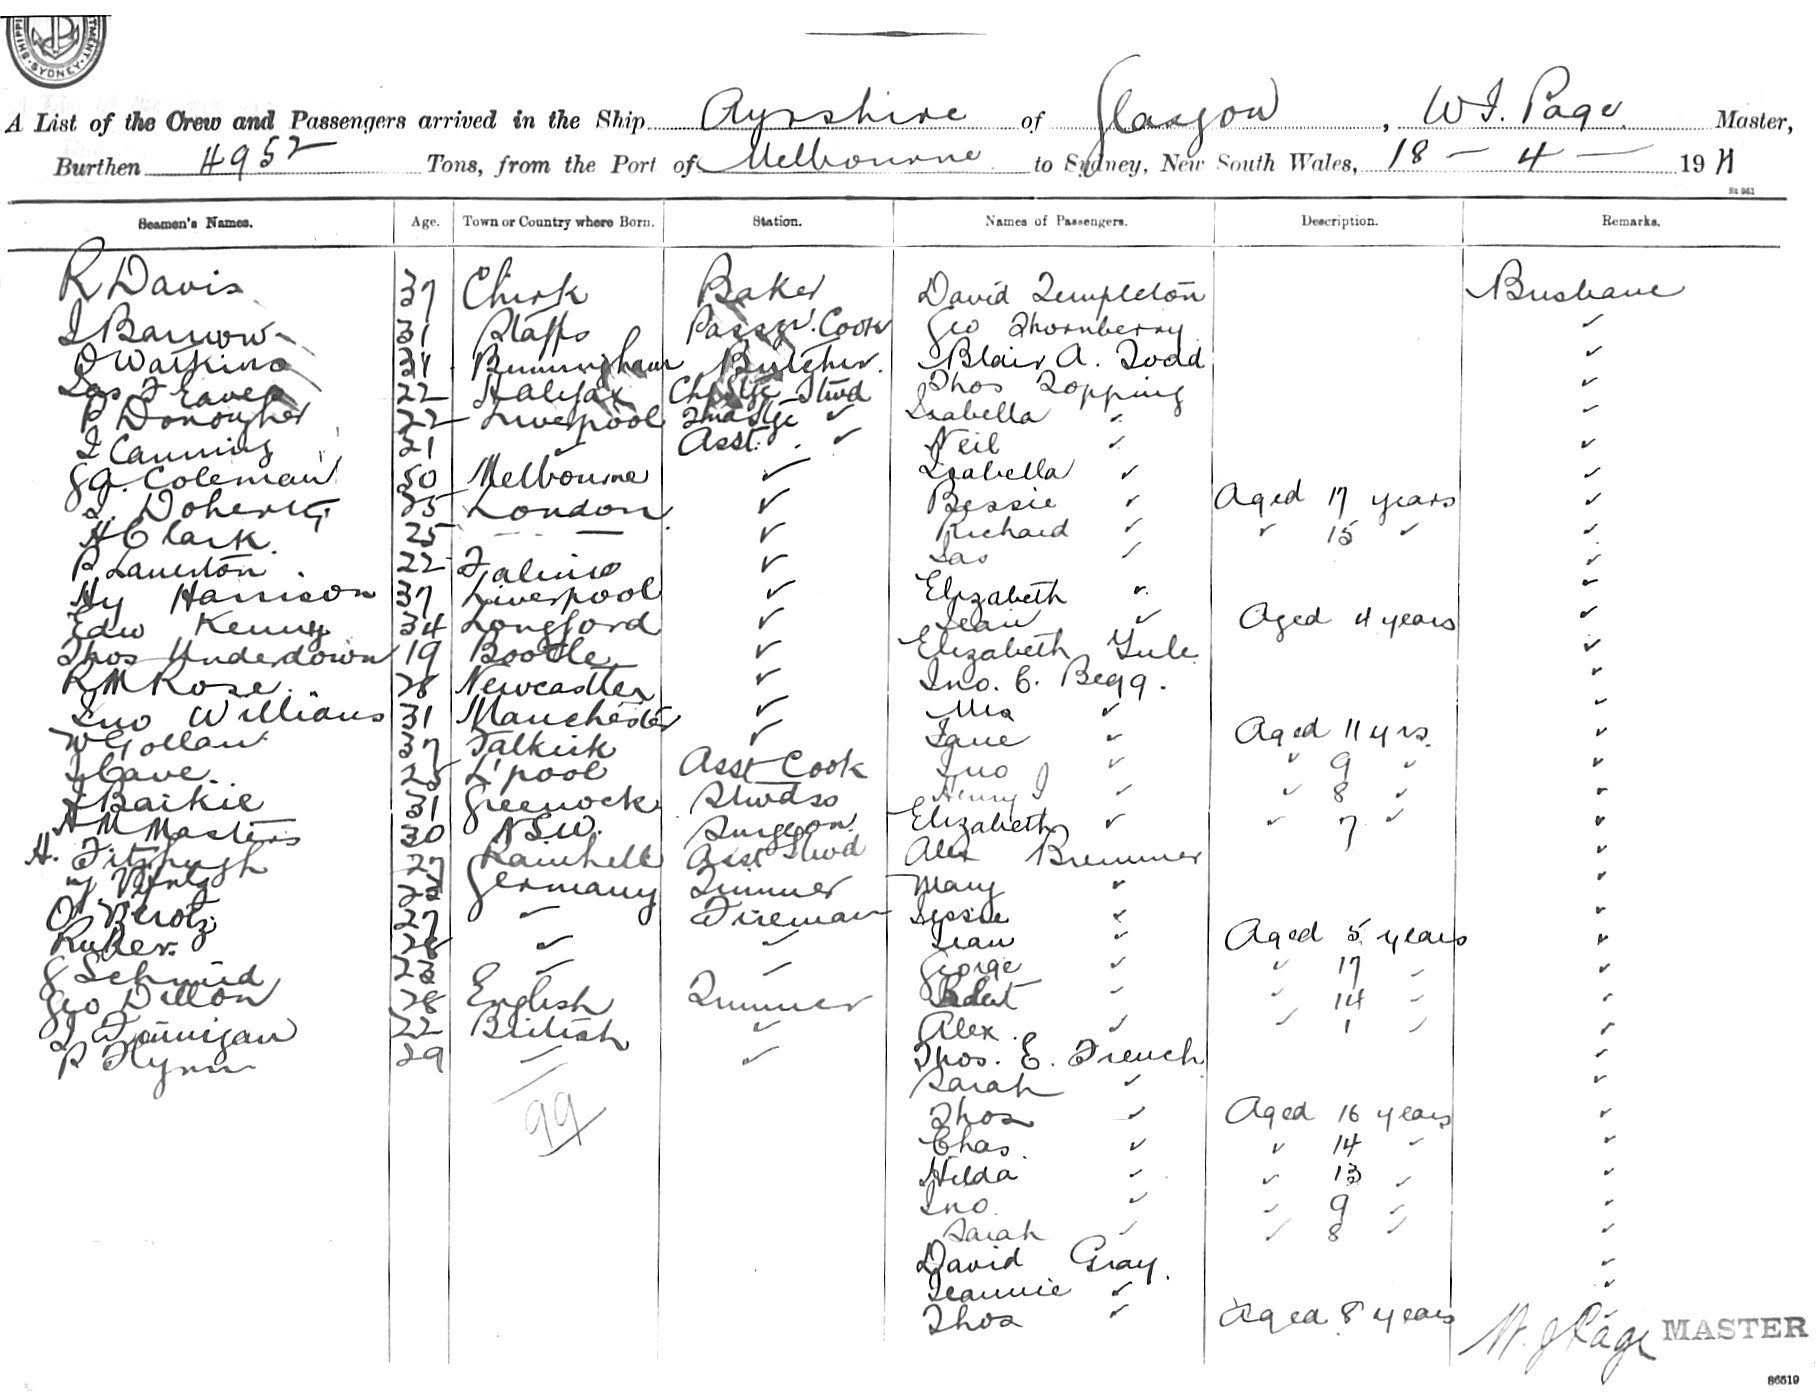 SHIPPI
TMENT. SYDNEY.
A List of the Crew and Passengers arrived in the Ship Ayrshire of Glasgow, W J. Page Master,
Burthen 4952 Tons, from the Port of Melbourne to Sydney, New South Wales, 18 - 4 - 1911
St 961
Seamen's Names. Age. Town or Country where Born. Station. Names of Passengers. Description. Remarks.
R Davis 37 Chirk Baker David Templeton Brisbane
J Barrow 31 Staffs Passgr. Cook Geo Thornberry ✓
Watkins Birmingham Butcher. Blair A. Todd ✓
Jas F Eaves 22 Halifax Ch Stge Stwd Thos Topping ✓
P Donogher 22 Liverpool 2nd Stge ✓ Isabella ✓ ✓
J Canning 21 ✓ Asst. ✓ Neil ✓ ✓
Coleman 50 Melbourne ✓ Isabella ✓ ✓
J. Doherty 35 London ✓ Bessie ✓ Aged 17 years ✓
H Clark 25 — — ✓ Richard ✓ ✓ 15 ✓ ✓
P Laverton 22 ✓ Jas ✓ ✓
Hy Harrison 37 Liverpool ✓ Elizabeth ✓ ✓
Edw Kenny 34 Longford ✓ Jean ✓ Aged 4 years ✓
Thos Underdown 19 Bootle ✓ Elizabeth Yule ✓
R M Rose 28 Newcastle ✓ Jno. C. Begg. ✓
Jno Williams 31 Manchester ✓ Mrs ✓ ✓
W Gollan 37 Falkirk ✓ Jane ✓ Aged 11 yrs. ✓
J Cave. 25 L'pool Asst Cook Jno ✓ ✓ 9 ✓ ✓
Baikie 31 Greenock Stwdss Henry J ✓ ✓ 8 ✓ ✓
A M Masters 30 N.S.W. Surgeon. Elizabeth ✓ ✓ 7 ✓ ✓
H. Fitzhugh 27 Rainhill Asst Stwd Alex Bremner ✓
Germany Trimmer Mary ✓ ✓
27 ✓ Fireman Jessie ✓ ✓
28 ✓ ✓ Jean ✓ Aged 5 years ✓
J Schmid 23 ✓ ✓ George ✓ ✓ 17 ✓ ✓
Geo Dillon 28 English Trimmer Robert ✓ ✓ 14 ✓ ✓
J Finnigan 22 British ✓ Alex. ✓ ✓ 1 ✓ ✓
P Flynn 29 ✓ ✓ Thos. E. French ✓
Sarah ✓ ✓
99 Thos ✓ Aged 16 years ✓
Chas ✓ ✓ 14 ✓ ✓
Hilda ✓ ✓ 13 ✓ ✓
Jno. ✓ ✓ 9 ✓ ✓
Sarah ✓ ✓ 8 ✓ ✓
David Gray. ✓
Jeannie ✓ ✓
Thos ✓ Aged 8 years ✓
W. J Page MASTER
86519